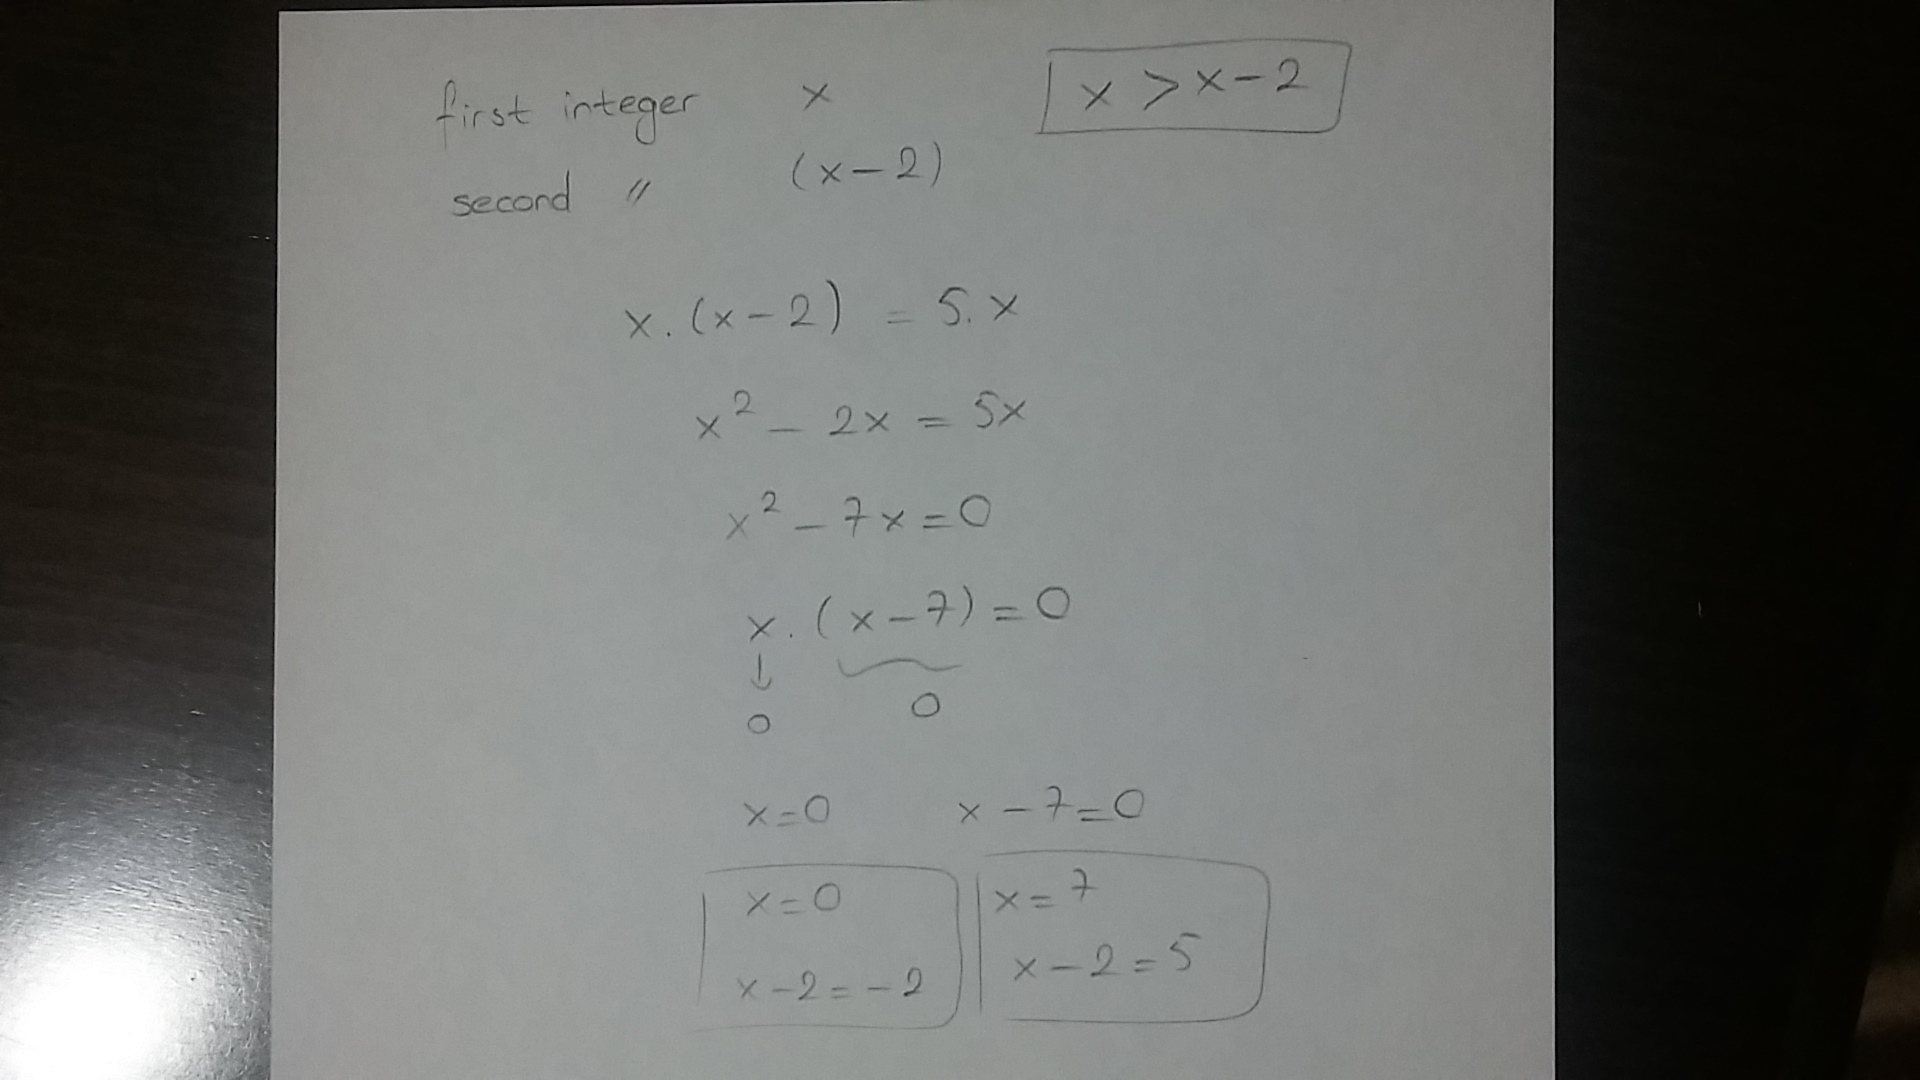 first integer x
x > x - 2
second " (x - 2)
x . (x - 2) = 5 . x
x² - 2x = 5x
x² - 7x = 0
x . (x - 7) = 0
↓
0 0
x = 0 x - 7 = 0
x = 0 x = 7
x - 2 = - 2 x - 2 = 5